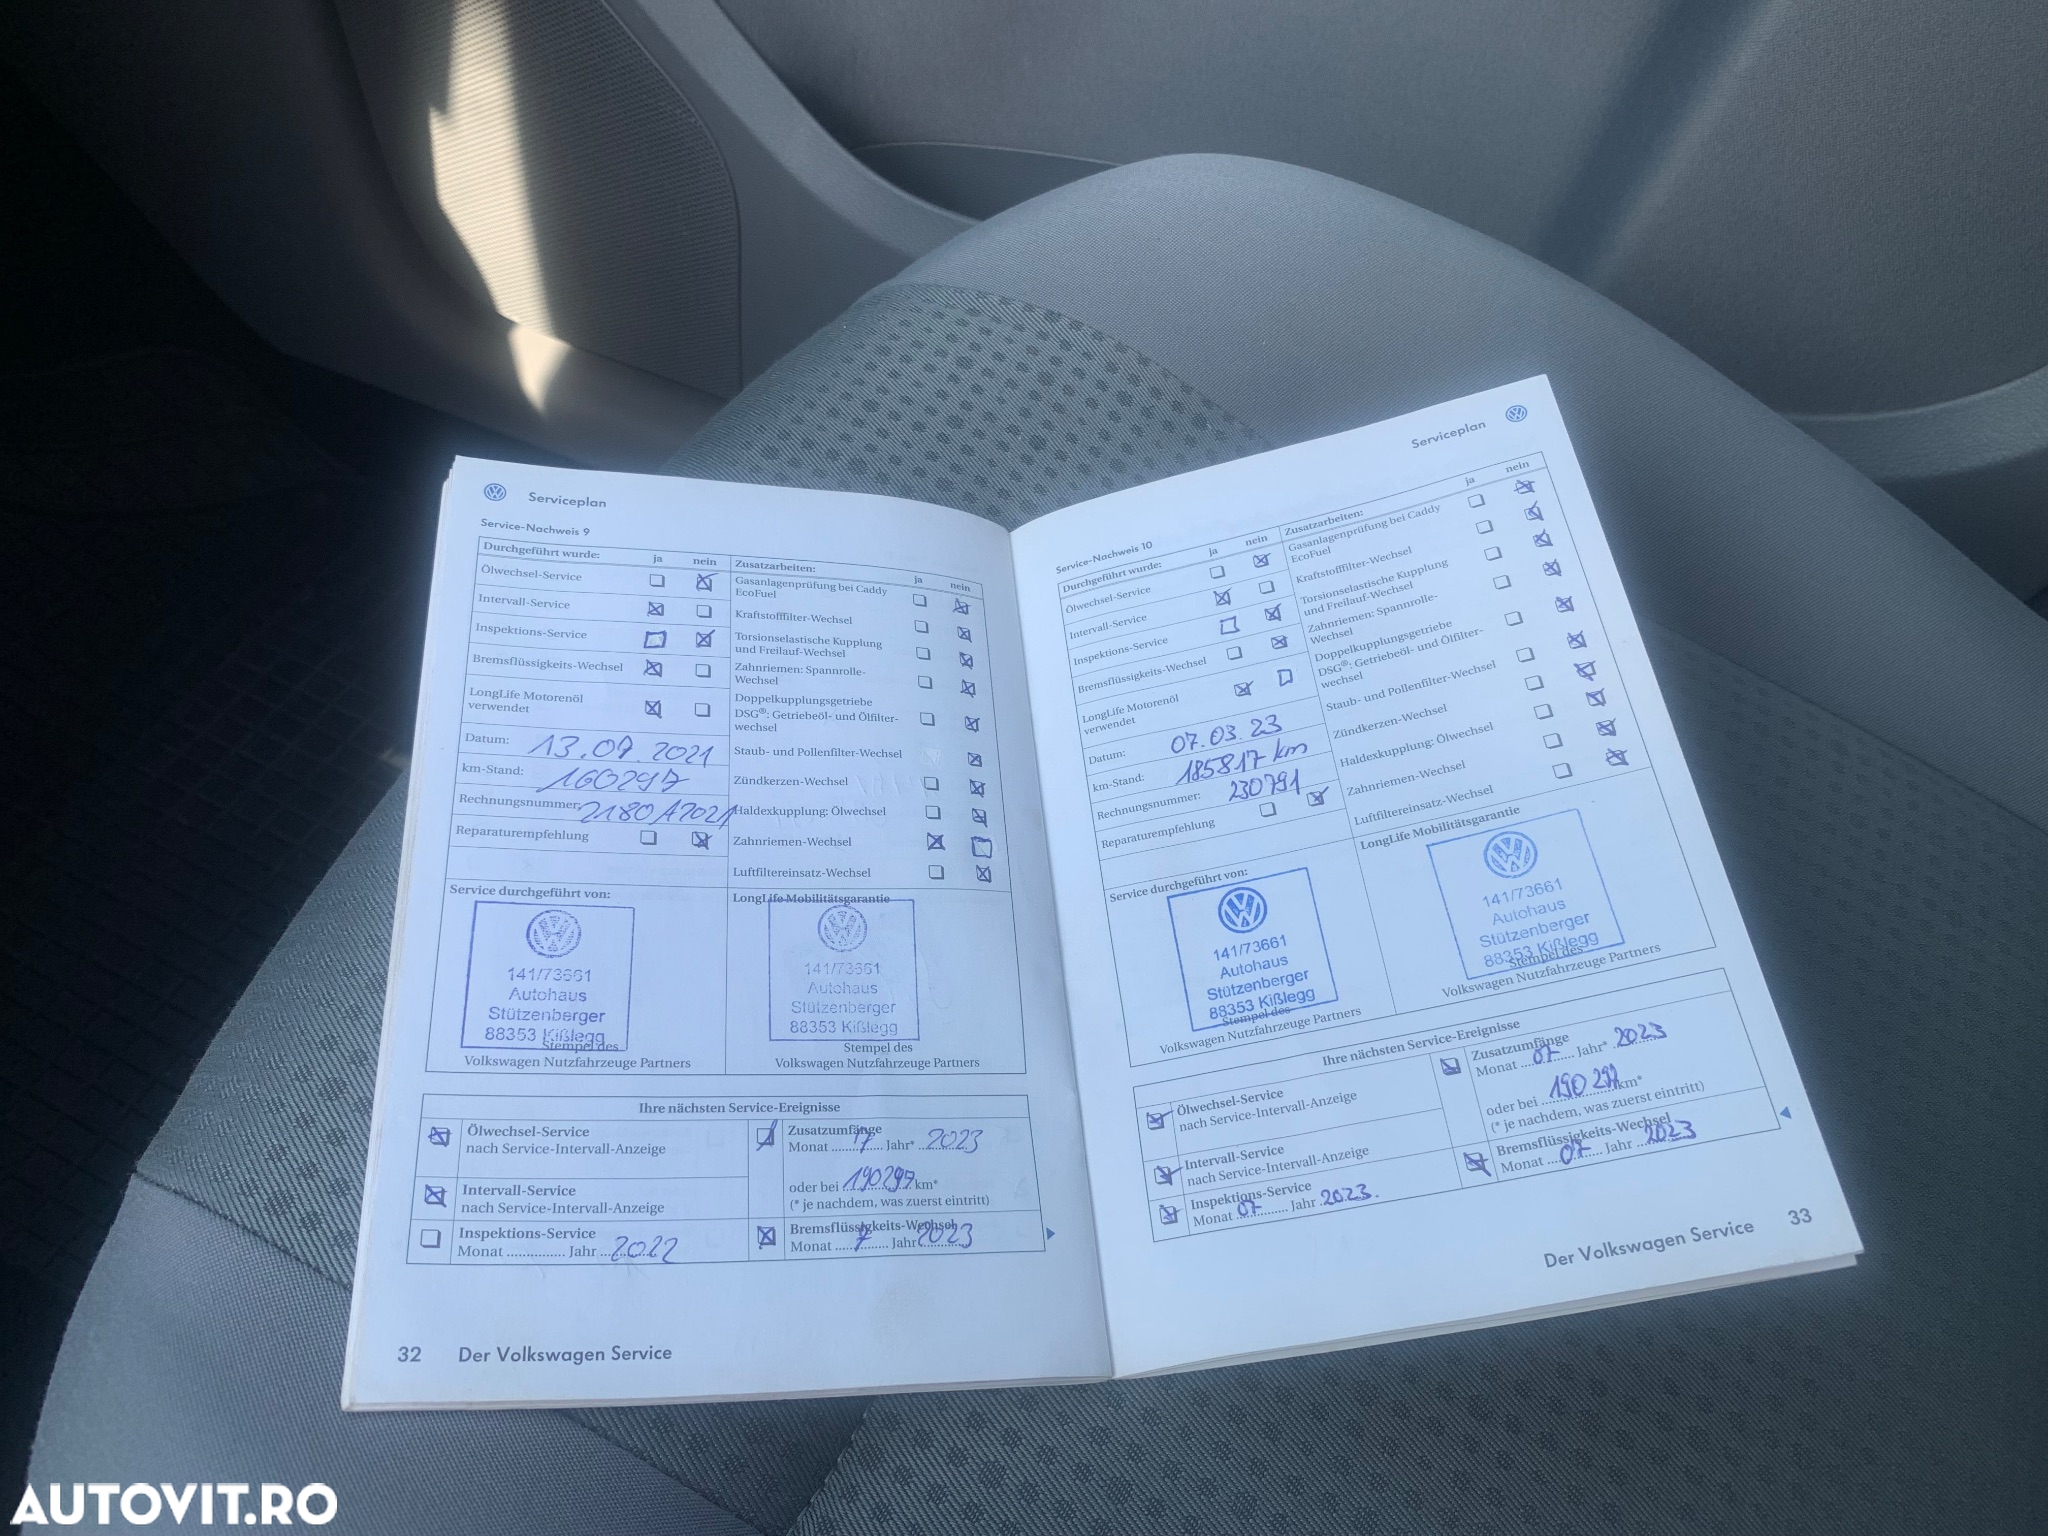 Serviceplan
Service-Nachweis 9
Durchgeführt wurde: ja nein
Ölwechsel-Service
Intervall-Service
Inspektions-Service
Bremsflüssigkeits-Wechsel
LongLife Motorenöl
verwendet
Datum: 13.07.2021
km-Stand: 160297
Rechnungsnummer: 2180A2021
Reparaturempfehlung
Zusatzarbeiten: ja nein
Gasanlagenprüfung bei Caddy
EcoFuel
Kraftstofffilter-Wechsel
Torsionselastische Kupplung
und Freilauf-Wechsel
Zahnriemen: Spannrolle-
Wechsel
Doppelkupplungsgetriebe
DSG®: Getriebeöl- und Ölfilter-
wechsel
Staub- und Pollenfilter-Wechsel
Zündkerzen-Wechsel
Haldexkupplung: Ölwechsel
Zahnriemen-Wechsel
Luftfiltereinsatz-Wechsel
Service durchgeführt von:
141/73661
Autohaus
Stützenberger
88353 Kißlegg
Stempel des
Volkswagen Nutzfahrzeuge Partners
LongLife Mobilitätsgarantie
141/73661
Autohaus
Stützenberger
88353 Kißlegg
Stempel des
Volkswagen Nutzfahrzeuge Partners
Ihre nächsten Service-Ereignisse
Ölwechsel-Service
nach Service-Intervall-Anzeige
Intervall-Service
nach Service-Intervall-Anzeige
Inspektions-Service
Monat ............... Jahr 2022
Zusatzumfänge
Monat 7 Jahr* 2023
oder bei 190297 km*
(* je nachdem, was zuerst eintritt)
Bremsflüssigkeits-Wechsel
Monat 7 Jahr 2023
32 Der Volkswagen Service
Serviceplan
Service-Nachweis 10
Durchgeführt wurde: ja nein
Ölwechsel-Service
Intervall-Service
Inspektions-Service
Bremsflüssigkeits-Wechsel
LongLife Motorenöl
verwendet
Datum: 07.03.23
km-Stand: 185817 km
Rechnungsnummer: 230791
Reparaturempfehlung
Zusatzarbeiten: ja nein
Gasanlagenprüfung bei Caddy
EcoFuel
Kraftstofffilter-Wechsel
Torsionselastische Kupplung
und Freilauf-Wechsel
Zahnriemen: Spannrolle-
Wechsel
Doppelkupplungsgetriebe
DSG®: Getriebeöl- und Ölfilter-
wechsel
Staub- und Pollenfilter-Wechsel
Zündkerzen-Wechsel
Haldexkupplung: Ölwechsel
Zahnriemen-Wechsel
Luftfiltereinsatz-Wechsel
Service durchgeführt von:
141/73661
Autohaus
Stützenberger
88353 Kißlegg
Stempel des
Volkswagen Nutzfahrzeuge Partners
LongLife Mobilitätsgarantie
141/73661
Autohaus
Stützenberger
88353 Kißlegg
Stempel des
Volkswagen Nutzfahrzeuge Partners
Ihre nächsten Service-Ereignisse
Ölwechsel-Service
nach Service-Intervall-Anzeige
Intervall-Service
nach Service-Intervall-Anzeige
Inspektions-Service
Monat 07 Jahr 2023.
Zusatzumfänge
Monat 07 Jahr* 2023
oder bei 190 297 km*
(* je nachdem, was zuerst eintritt)
Bremsflüssigkeits-Wechsel
Monat 07 Jahr 2023
Der Volkswagen Service 33
AUTOVIT.RO